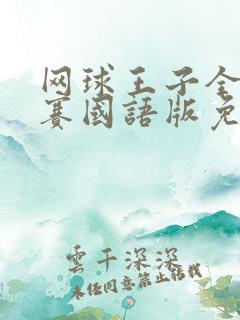 网球王子全
赛国語版免
雲千深深
未经同意禁止转载